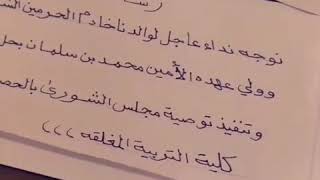 نوجه نداء عاجل لوالدنا خادم الحرمين
وولي عهده الأمين محمد بن سلمان بحل
وتنفيذ توصية مجلس الشورى
كلية التربية المغلقه ،،،